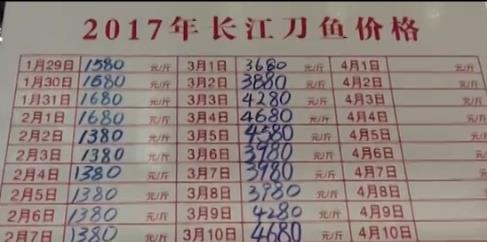 2017年长江刀鱼价格
1月29日 1580 元/斤 3月1日 3680 元/斤 4月1日 元/斤
1月30日 1680 元/斤 3月2日 3880 元/斤 4月2日 元/斤
1月31日 1680 元/斤 3月3日 4280 元/斤 4月3日 元/斤
2月1日 1680 元/斤 3月4日 4680 元/斤 4月4日 元/斤
2月2日 1380 元/斤 3月5日 4580 元/斤 4月5日 元/斤
2月3日 1380 元/斤 3月6日 3980 元/斤 4月6日 元/斤
2月4日 1380 元/斤 3月7日 3980 元/斤 4月7日 元/斤
2月5日 1380 元/斤 3月8日 3980 元/斤 4月8日 元/斤
2月6日 1380 元/斤 3月9日 4280 元/斤 4月9日 元/斤
2月7日 1380 元/斤 3月10日 4680 元/斤 4月10日